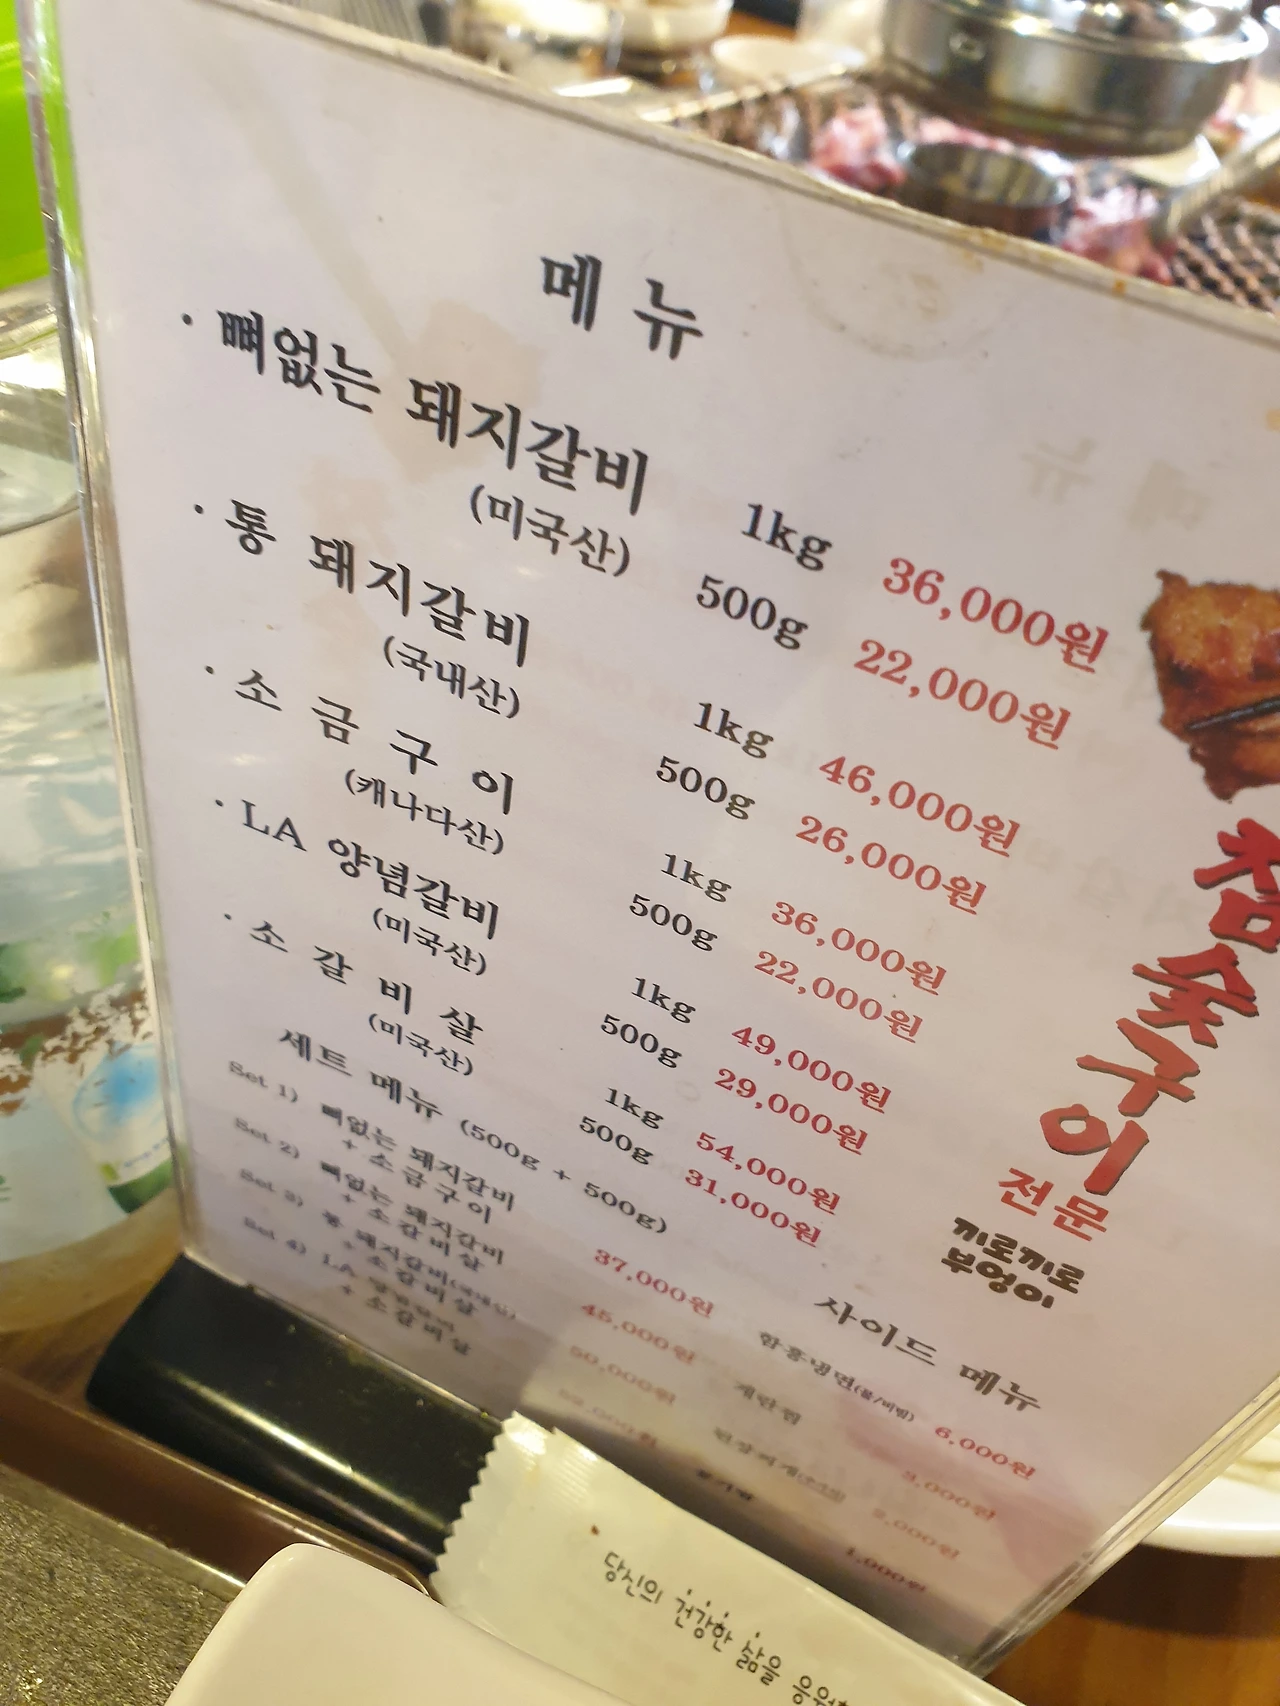 메 뉴
· 뼈없는 돼지갈비 1kg 36,000원
(미국산) 500g 22,000원
· 통 돼지갈비 1kg 46,000원
(국내산) 500g 26,000원
· 소 금 구 이 1kg 36,000원
(캐나다산) 500g 22,000원
· LA 양념갈비 1kg 49,000원
(미국산) 500g 29,000원
· 소 갈 비 살 1kg 54,000원
(미국산) 500g 31,000원
세트 메뉴 (500g + 500g)
Set 1) 뼈없는 돼지갈비
+ 소금구이 37,000원
Set 2) 뼈없는 돼지갈비
+ 소갈비살 45,000원
Set 3) 통 돼지갈비(국내산)
+ 소갈비살 50,000원
Set 4) LA 양념갈비
+ 소갈비살
참숯구이
전문
끼로끼로
부엉이
사이드 메뉴
함흥냉면(물/비빔) 6,000원
계란찜 3,000원
된장찌개 2,000원
공기밥 1,000원
당신의 건강한 삶을